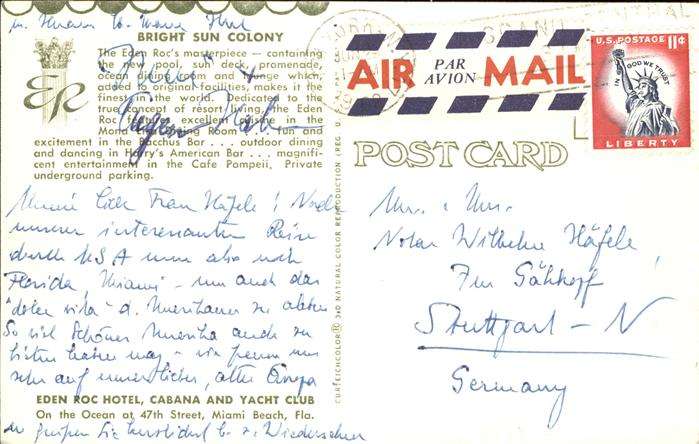 BRIGHT SUN COLONY
The Eden Roc's masterpiece — containing
new pool, sun deck, promenade,
ocean dining room and lounge which,
added to original facilities, makes it the
finest in the world. Dedicated to the
concept of resort living, the Eden
Roc features excellent cuisine in the
Mona Lisa Dining Room fun and
excitement in the Bacchus Bar . . . outdoor dining
and dancing in Harry's American Bar . . . magnifi-
cent entertainment in the Cafe Pompeii, Private
underground parking.
ER
Meine liebe Frau Häfele! Nach
unserer interessanten Reise
durch USA nun also noch
Florida, Miami - um auch das
"dolce vita" d. Amerikaner zu
So viel Schönes Amerika auch zu
bieten haben mag - wir freuen uns
sehr auf unser altes Europa
EDEN ROC HOTEL, CABANA AND YACHT CLUB
On the Ocean at 47th Street, Miami Beach, Fla.
wir grüßen Sie herzlichst b. z. Wiedersehen
CURTEICHCOLOR® 3-D NATURAL COLOR REPRODUCTION (REG. U.S.
AIR PAR AVION MAIL
U.S. POSTAGE 11¢
IN GOD WE TRUST
LIBERTY
POST CARD
Mr. u. Mrs.
Notar Wilhelm Häfele
Im Gähkopf
Stuttgart - N
Germany